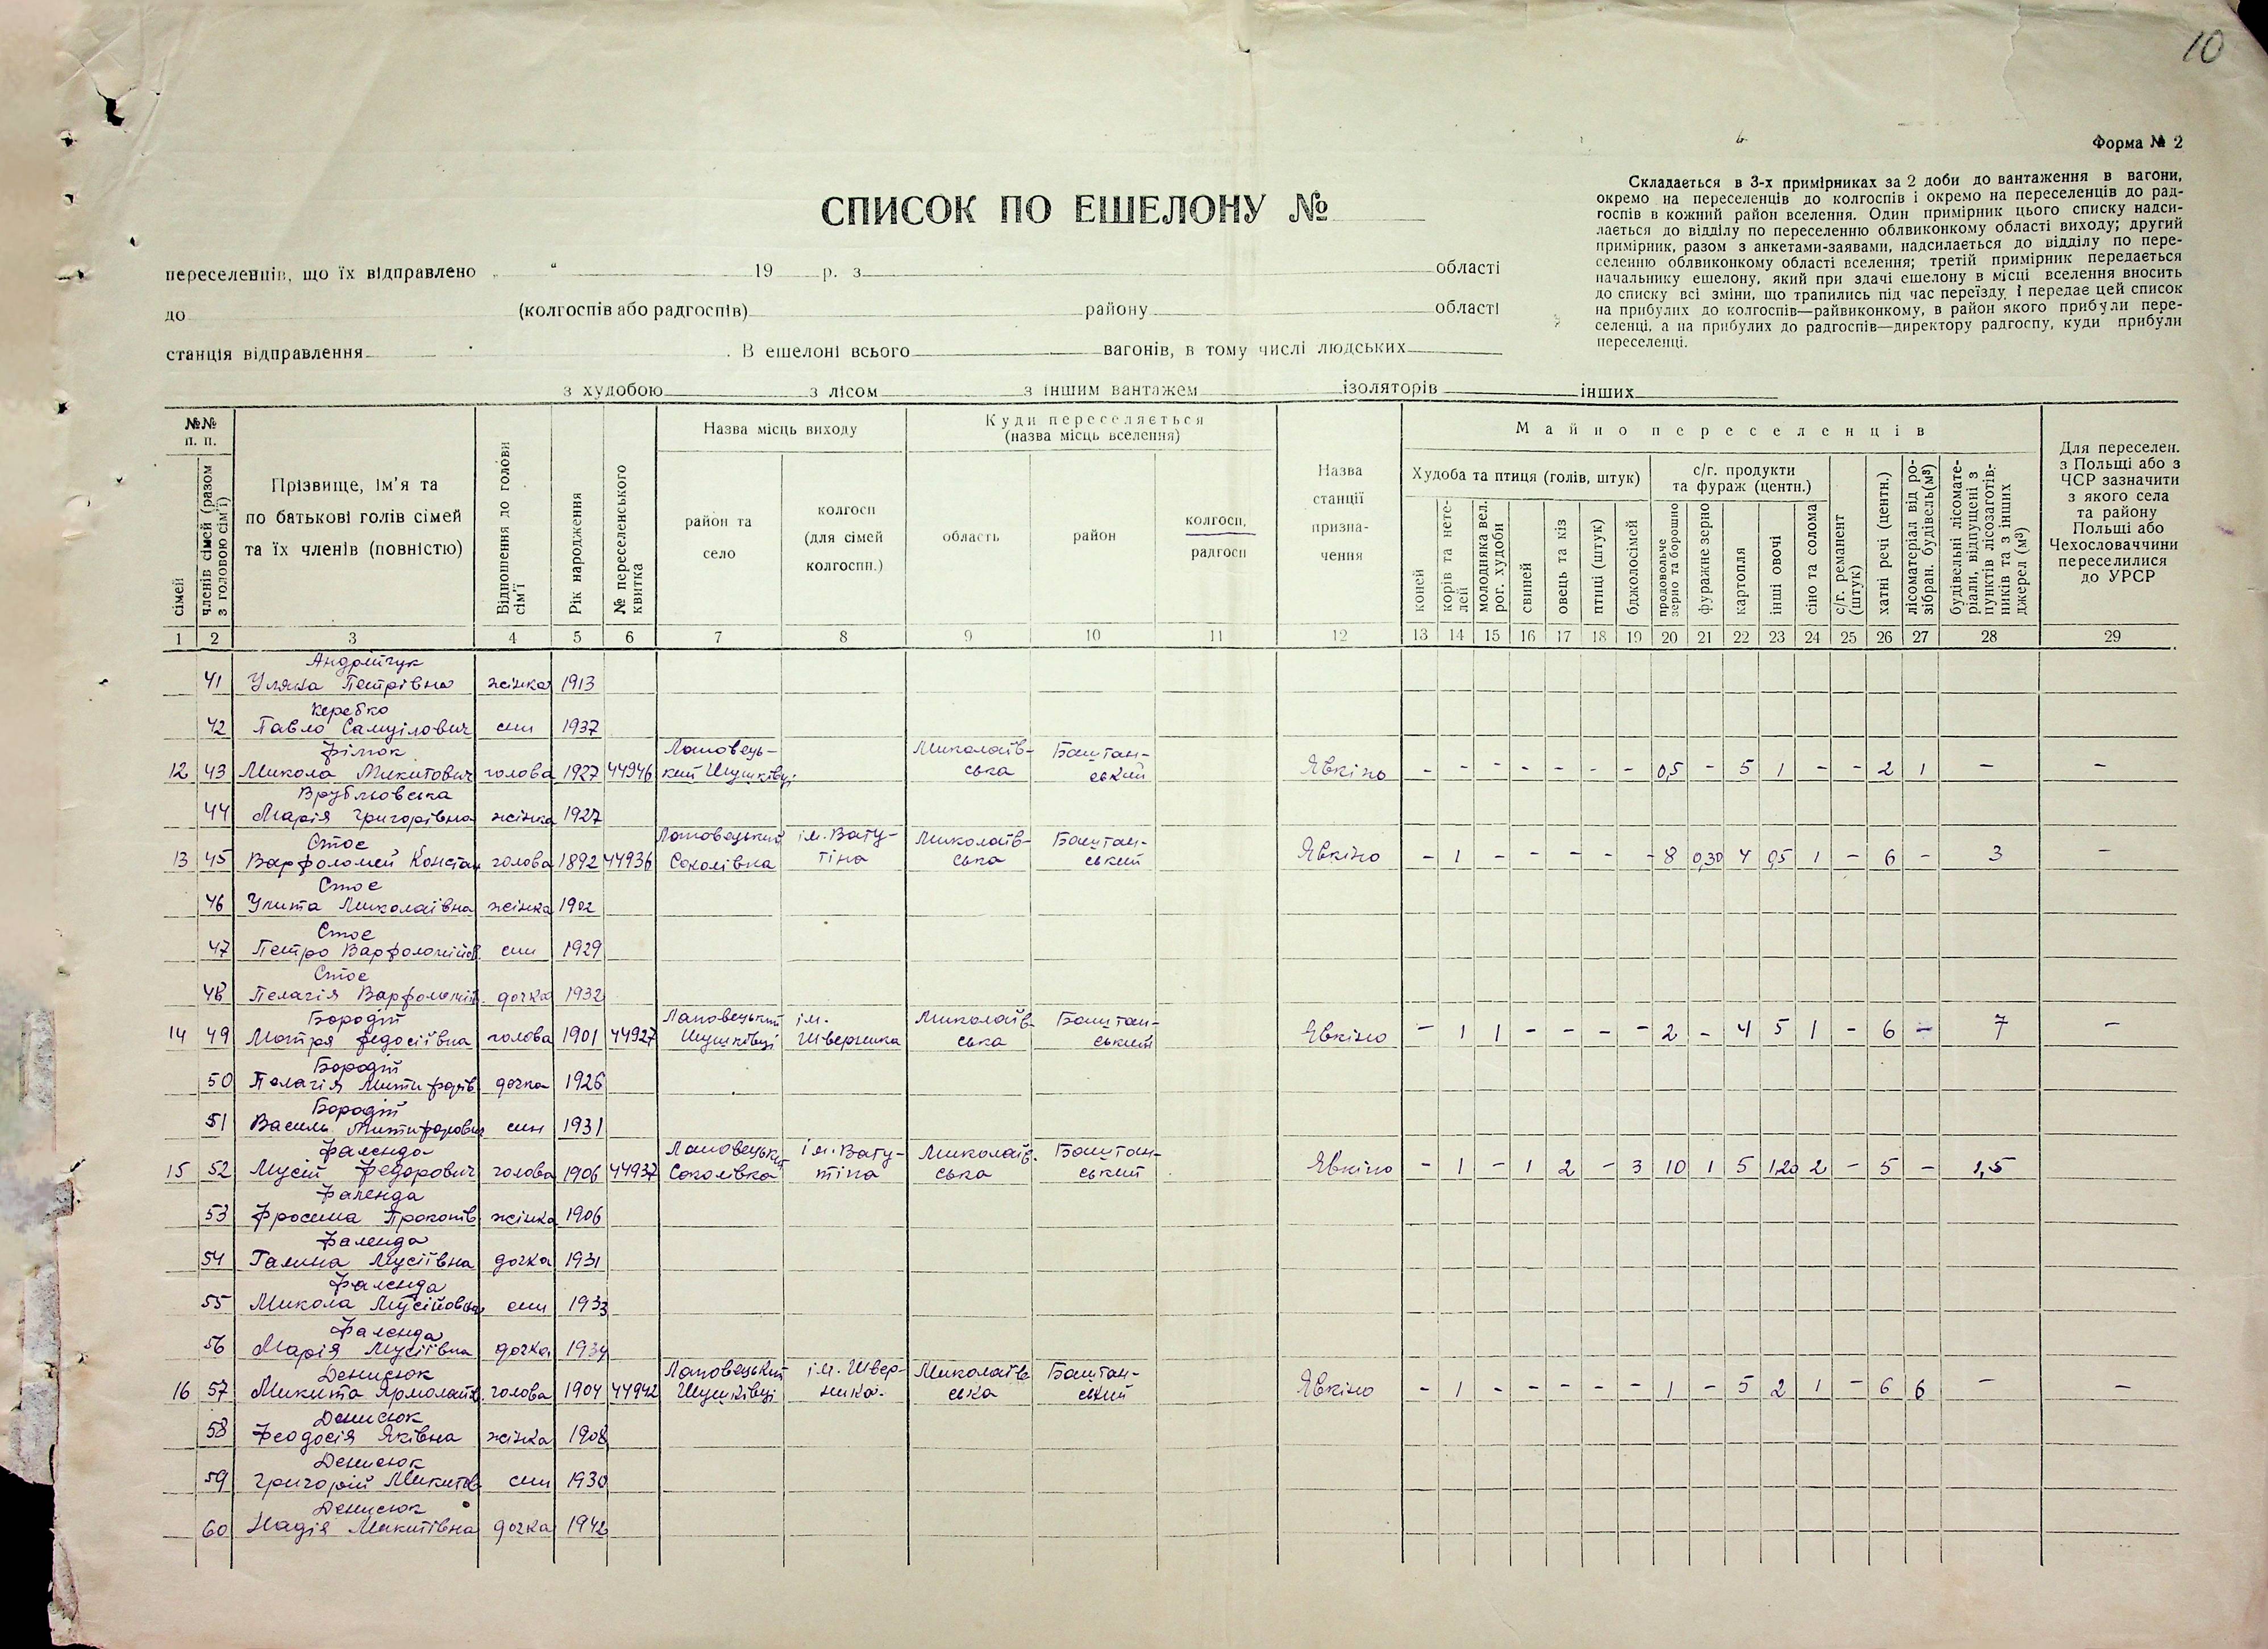 10
Форма № 2
СПИСОК ПО ЕШЕЛОНУ №
Складається в 3-х примірниках за 2 доби до вантаження в вагони,
окремо на переселенців до колгоспів і окремо на переселенців до рад-
госпів в кожний район вселення. Один примірник цього списку надси-
лається до відділу по переселенню облвиконкому області виходу; другий
примірник, разом з анкетами-заявами, надсилається до відділу по пере-
селенню облвиконкому області вселення; третій примірник передається
начальнику ешелону, який при здачі ешелону в місці вселення вносить
до списку всі зміни, що трапились під час переїзду, і передає цей список
на прибулих до колгоспів—райвиконкому, в район якого прибули пере-
селенці, а на прибулих до радгоспів—директору радгоспу, куди прибули
переселенці.
переселенців, що їх відправлено " 19 р. з області
до (колгоспів або радгоспів) району області
станція відправлення . В ешелоні всього вагонів, в тому числі людських
з худобою з лісом з іншим вантажем ізоляторів інших
№№ п. п.
сімей
членів сімей (разом з головою сім'ї)
Прізвище, ім'я та
по батькові голів сімей
та їх членів (повністю)
Відношення до голови сім'ї
Рік народження
№ переселенського квитка
Назва місць виходу
район та
село
колгосп
(для сімей
колгоспн.)
Куди переселяється
(назва місць вселення)
область
район
колгосп,
радгосп
Назва
станції
призна-
чення
Майно переселенців
Худоба та птиця (голів, штук)
коней
корів та нете-
лей
молодняка вел.
рог. худоби
свиней
овець та кіз
птиці (штук)
бджолосімей
с/г. продукти
та фураж (центн.)
продовольче
зерно та борошно
фуражне зерно
картопля
інші овочі
сіно та солома
с/г. реманент
(штук)
хатні речі (центн.)
лісоматеріал від ро-
зібран. будівель(м³)
будівельні лісомате-
ріали, відпущені з
пунктів лісозаготів-
ників та з інших
джерел (м³)
Для переселен.
з Польщі або з
ЧСР зазначити
з якого села
та району
Польщі або
Чехословаччини
переселилися
до УРСР
1 2 3 4 5 6 7 8 9 10 11 12 13 14 15 16 17 18 19 20 21 22 23 24 25 26 27 28 29
Андрійчук
41 Уляна Петрівна жінка 1913
Керебко
42 Павло Самуілович син 1937
Філюк Лановець- Миколаїв- Баштан-
12 43 Микола Микитович голова 1927 44946 кий Шушківці ська ський Явкіно - - - - - - - 0,5 - 5 1 - - 2 1 - -
Врублювська
44 Марія Григорівна жінка 1927
Стос Лановецький ім. Вату- Миколаїв- Баштан-
13 45 Варфоломей Констан голова 1892 44936 Соколівка тіна ська ський Явкіно - 1 - - - - - 8 0,30 4 0,5 1 - 6 - 3 -
Стос
46 Улита Миколаївна жінка 1902
Стос
47 Петро Варфоломійов. син 1929
Стос
48 Пелагія Варфоломіїв. дочка 1932
Бородій Лановецький ім. Миколаїв- Баштан-
14 49 Мотря Федосіївна голова 1901 44927 Шушківці Шверника ська ський Явкіно - 1 1 - - - - 2 - 4 5 1 - 6 - 7 -
Бородій
50 Пелагія Митифорів дочка 1926
Бородій
51 Василь Митифорович син 1931
Фаленда Лановецький ім. Вату- Миколаїв- Баштан-
15 52 Мусій Федорович голова 1906 44937 Соколівка тіна ська ський Явкіно - 1 - 1 2 - 3 10 1 5 1,20 2 - 5 - 1,5
Фаленда
53 Фросина Прокопів. жінка 1906
Фаленда
54 Галина Мусіївна дочка 1931
Фаленда
55 Микола Мусійович син 1933
Фаленда
56 Марія Мусіївна дочка 1934
Денисюк Лановецький ім. Швер- Миколаїв Баштан-
16 57 Микита Ярмолаїв. голова 1904 44942 Шушківці ника. ська ський Явкіно - 1 - - - - - 1 - 5 2 1 - 6 6 - -
Денисюк
58 Феодосія Яківна жінка 1908
Денисюк
59 Григорій Микитов син 1930
Денисюк
60 Надія Микитівна дочка 1942